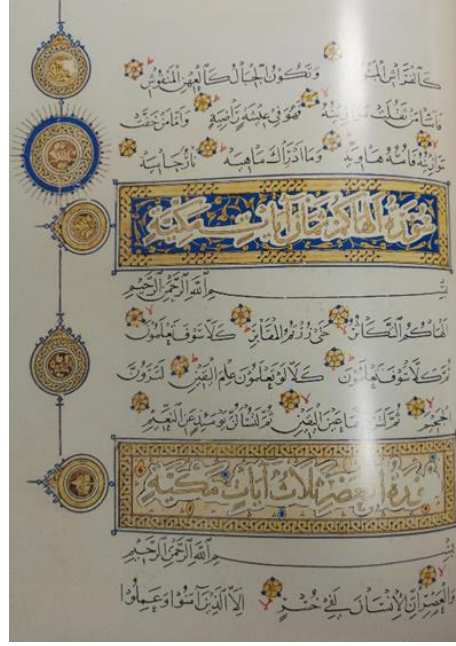 كَالْفَرَاشِ الْمَبْثُوثِ وَتَكُونُ الْجِبَالُ كَالْعِهْنِ الْمَنْفُوشِ
فَأَمَّا مَنْ ثَقُلَتْ مَوَازِينُهُ فَهُوَ فِي عِيشَةٍ رَاضِيَةٍ وَأَمَّا مَنْ خَفَّتْ
مَوَازِينُهُ فَأُمُّهُ هَاوِيَةٌ وَمَا أَدْرَاكَ مَا هِيَهْ نَارٌ حَامِيَةٌ
سُورَةُ أَلْهَاكُمْ ثَمَانِ آيَاتٍ مَكِّيَّةٌ
بِسْمِ اللَّهِ الرَّحْمَنِ الرَّحِيمِ
أَلْهَاكُمُ التَّكَاثُرُ حَتَّى زُرْتُمُ الْمَقَابِرَ كَلَّا سَوْفَ تَعْلَمُونَ
ثُمَّ كَلَّا سَوْفَ تَعْلَمُونَ كَلَّا لَوْ تَعْلَمُونَ عِلْمَ الْيَقِينِ لَتَرَوُنَّ
الْجَحِيمَ ثُمَّ لَتَرَوُنَّهَا عَيْنَ الْيَقِينِ ثُمَّ لَتُسْأَلُنَّ يَوْمَئِذٍ عَنِ النَّعِيمِ
سُورَةُ الْعَصْرِ ثَلَاثُ آيَاتٍ مَكِّيَّةٌ
بِسْمِ اللَّهِ الرَّحْمَنِ الرَّحِيمِ
وَالْعَصْرِ إِنَّ الْإِنْسَانَ لَفِي خُسْرٍ إِلَّا الَّذِينَ آمَنُوا وَعَمِلُوا